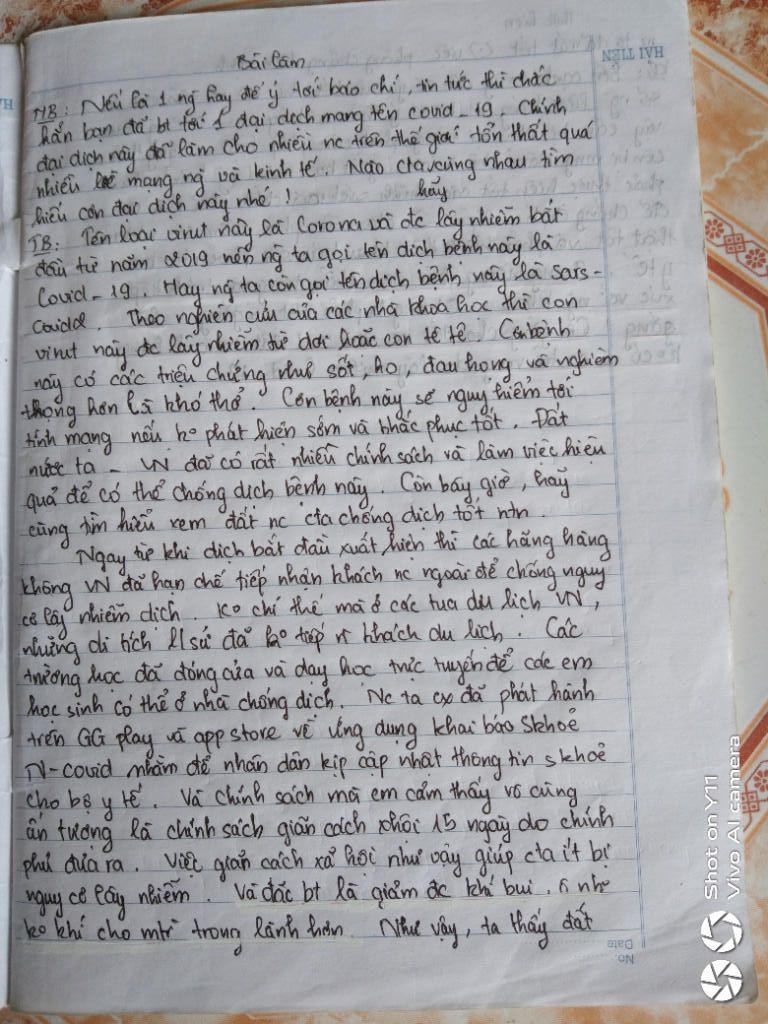 Bài làm
HẢI TIẾN
MB: Nếu là 1 ng hay để ý tới báo chí, tin tức thì chắc
hẳn bạn đã bt tới 1 đại dịch mang tên covid-19. Chính
đại dịch này đã làm cho nhiều nc trên thế giới tổn thất quá
nhiều về mạng ng và kinh tế. Nào cta cùng nhau tìm
hãy
hiểu cơn đại dịch này nhé!
TB: Tên loại virut này là Corona và đc lây nhiễm bắt
đầu từ năm 2019 nên ng ta gọi tên dịch bệnh này là
Covid-19. Hay ng ta còn gọi tên dịch bệnh này là sars-
. Theo nghiên cứu của các nhà khoa học thì con
virut này đc lây nhiễm từ dơi hoặc con tê tê. Cơn bệnh
này có các triệu chứng như sốt, ho, đau họng và nghiêm
trọng hơn là khó thở. Cơn bệnh này sẽ nguy hiểm tới
tính mạng nếu ko phát hiện sớm và khắc phục tốt. Đất
nước ta - VN đã có rất nhiều chính sách và làm việc hiệu
quả để có thể chống dịch bệnh này. Còn bây giờ, hãy
cùng tìm hiểu xem đất nc cta chống dịch tốt ntn.
Ngay từ khi dịch bắt đầu xuất hiện thì các hãng hàng
không VN đã hạn chế tiếp nhận khách nc ngoài để chống nguy
cơ lây nhiễm dịch. Ko chỉ thế mà ở các tua du lịch VN,
những di tích l/sử đã ko tiếp khách du lịch. Các
trường học đã đóng cửa và dạy học trực tuyến để các em
học sinh có thể ở nhà chống dịch. Nc ta cx đã phát hành
trên GG play và app store về ứng dụng khai báo skhoẻ
N-covid nhằm để nhân dân kịp cập nhật thông tin skhoẻ
cho bộ y tế. Và chính sách mà em cảm thấy vô cùng
ấn tượng là chính sách giãn cách xhội 15 ngày do chính
phủ đưa ra. Việc giãn cách xã hội như vậy giúp cta ít bị
nguy cơ lây nhiễm. Và đặc bt là giảm đc khí bụi, ô nh
ko khí cho mtr trong lành hơn. Như vậy, ta thấy đất
No:
Date
Shot on Y11
Vivo AI camera